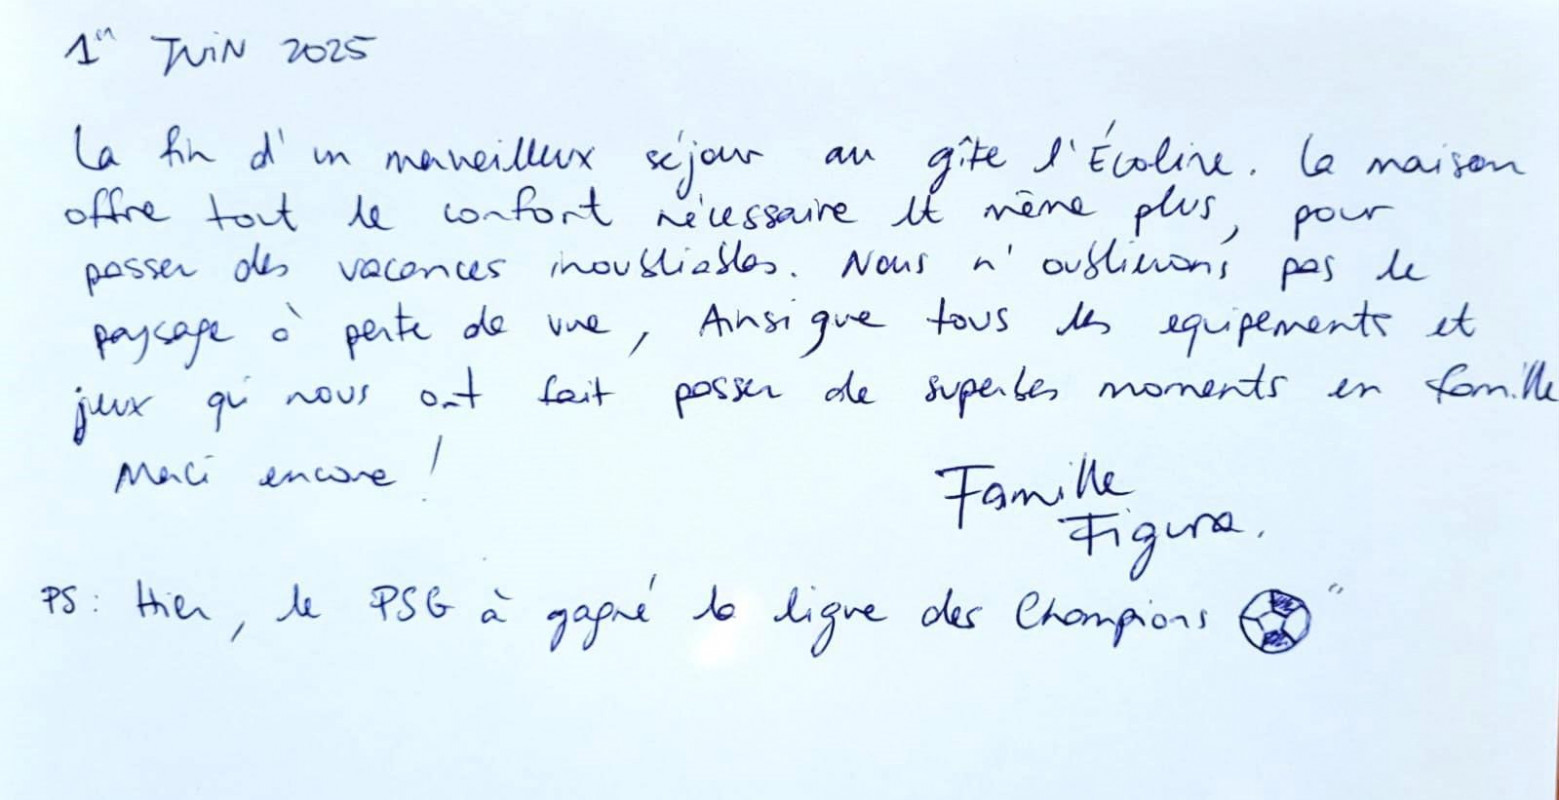 1er JUIN 2025
La fin d'un merveilleux séjour au gîte l'Écoline. La maison
offre tout le confort nécessaire et même plus, pour
passer des vacances inoubliables. Nous n'oublierons pas le
paysage à perte de vue, Ainsi que tous les equipements et
jeux qui nous ont fait passer de superbes moments en famille
Merci encore !
Famille
Figura.
PS : Hier, le PSG à gagné la ligue des Champions